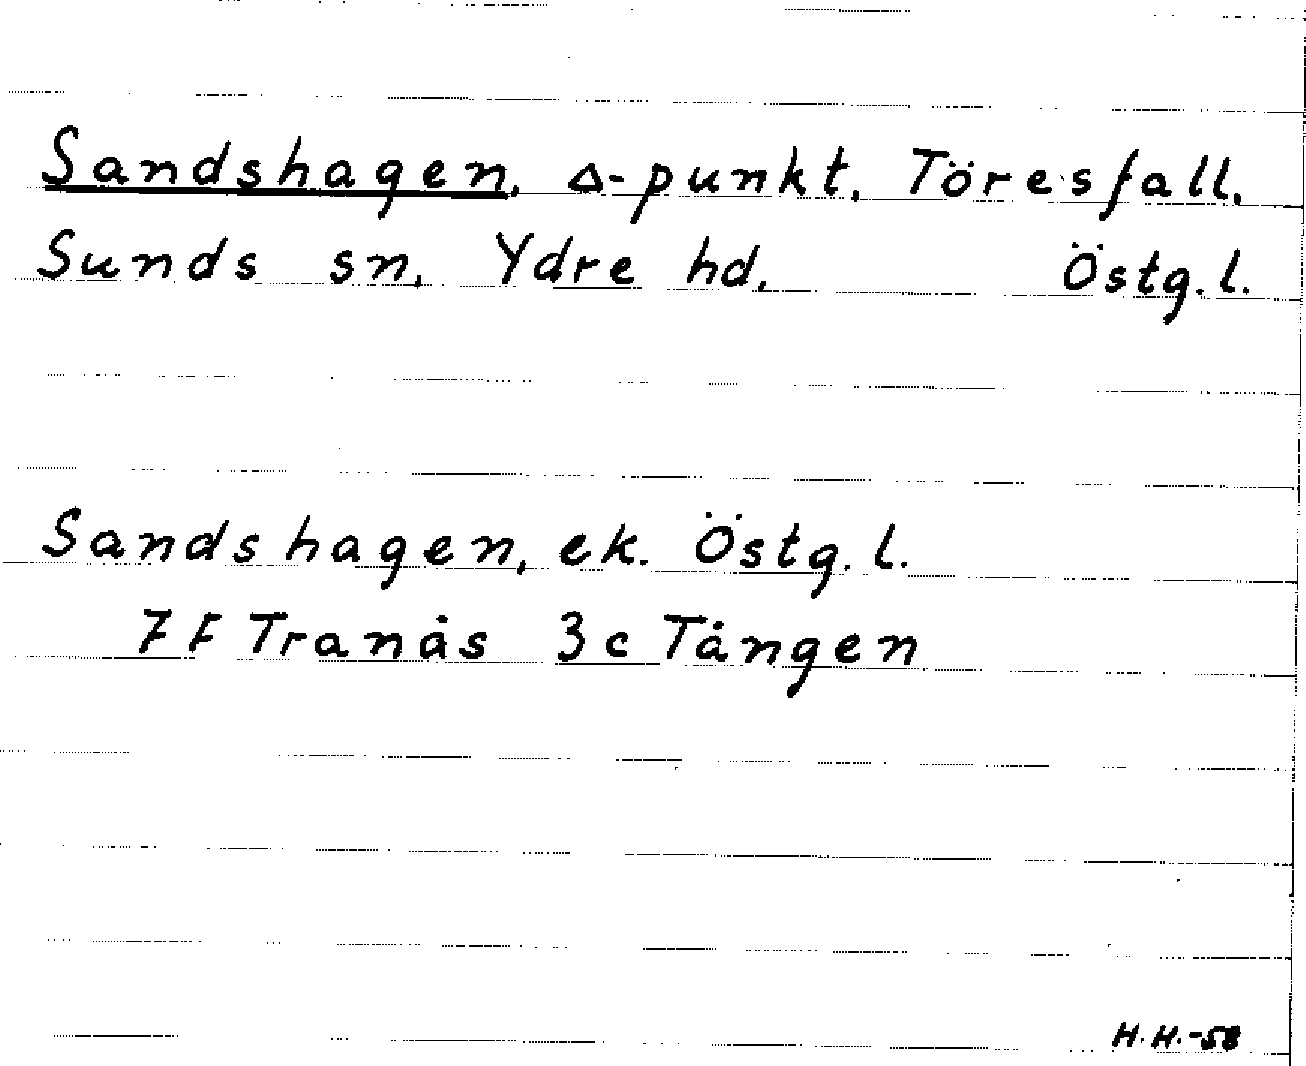 Sandshagen, Δ-punkt, Töresfall,
Sunds sn, Ydre hd, Östg. l.
Sandshagen, ek. Östg. l.
7F Tranås 3c Tången
H.H.-58